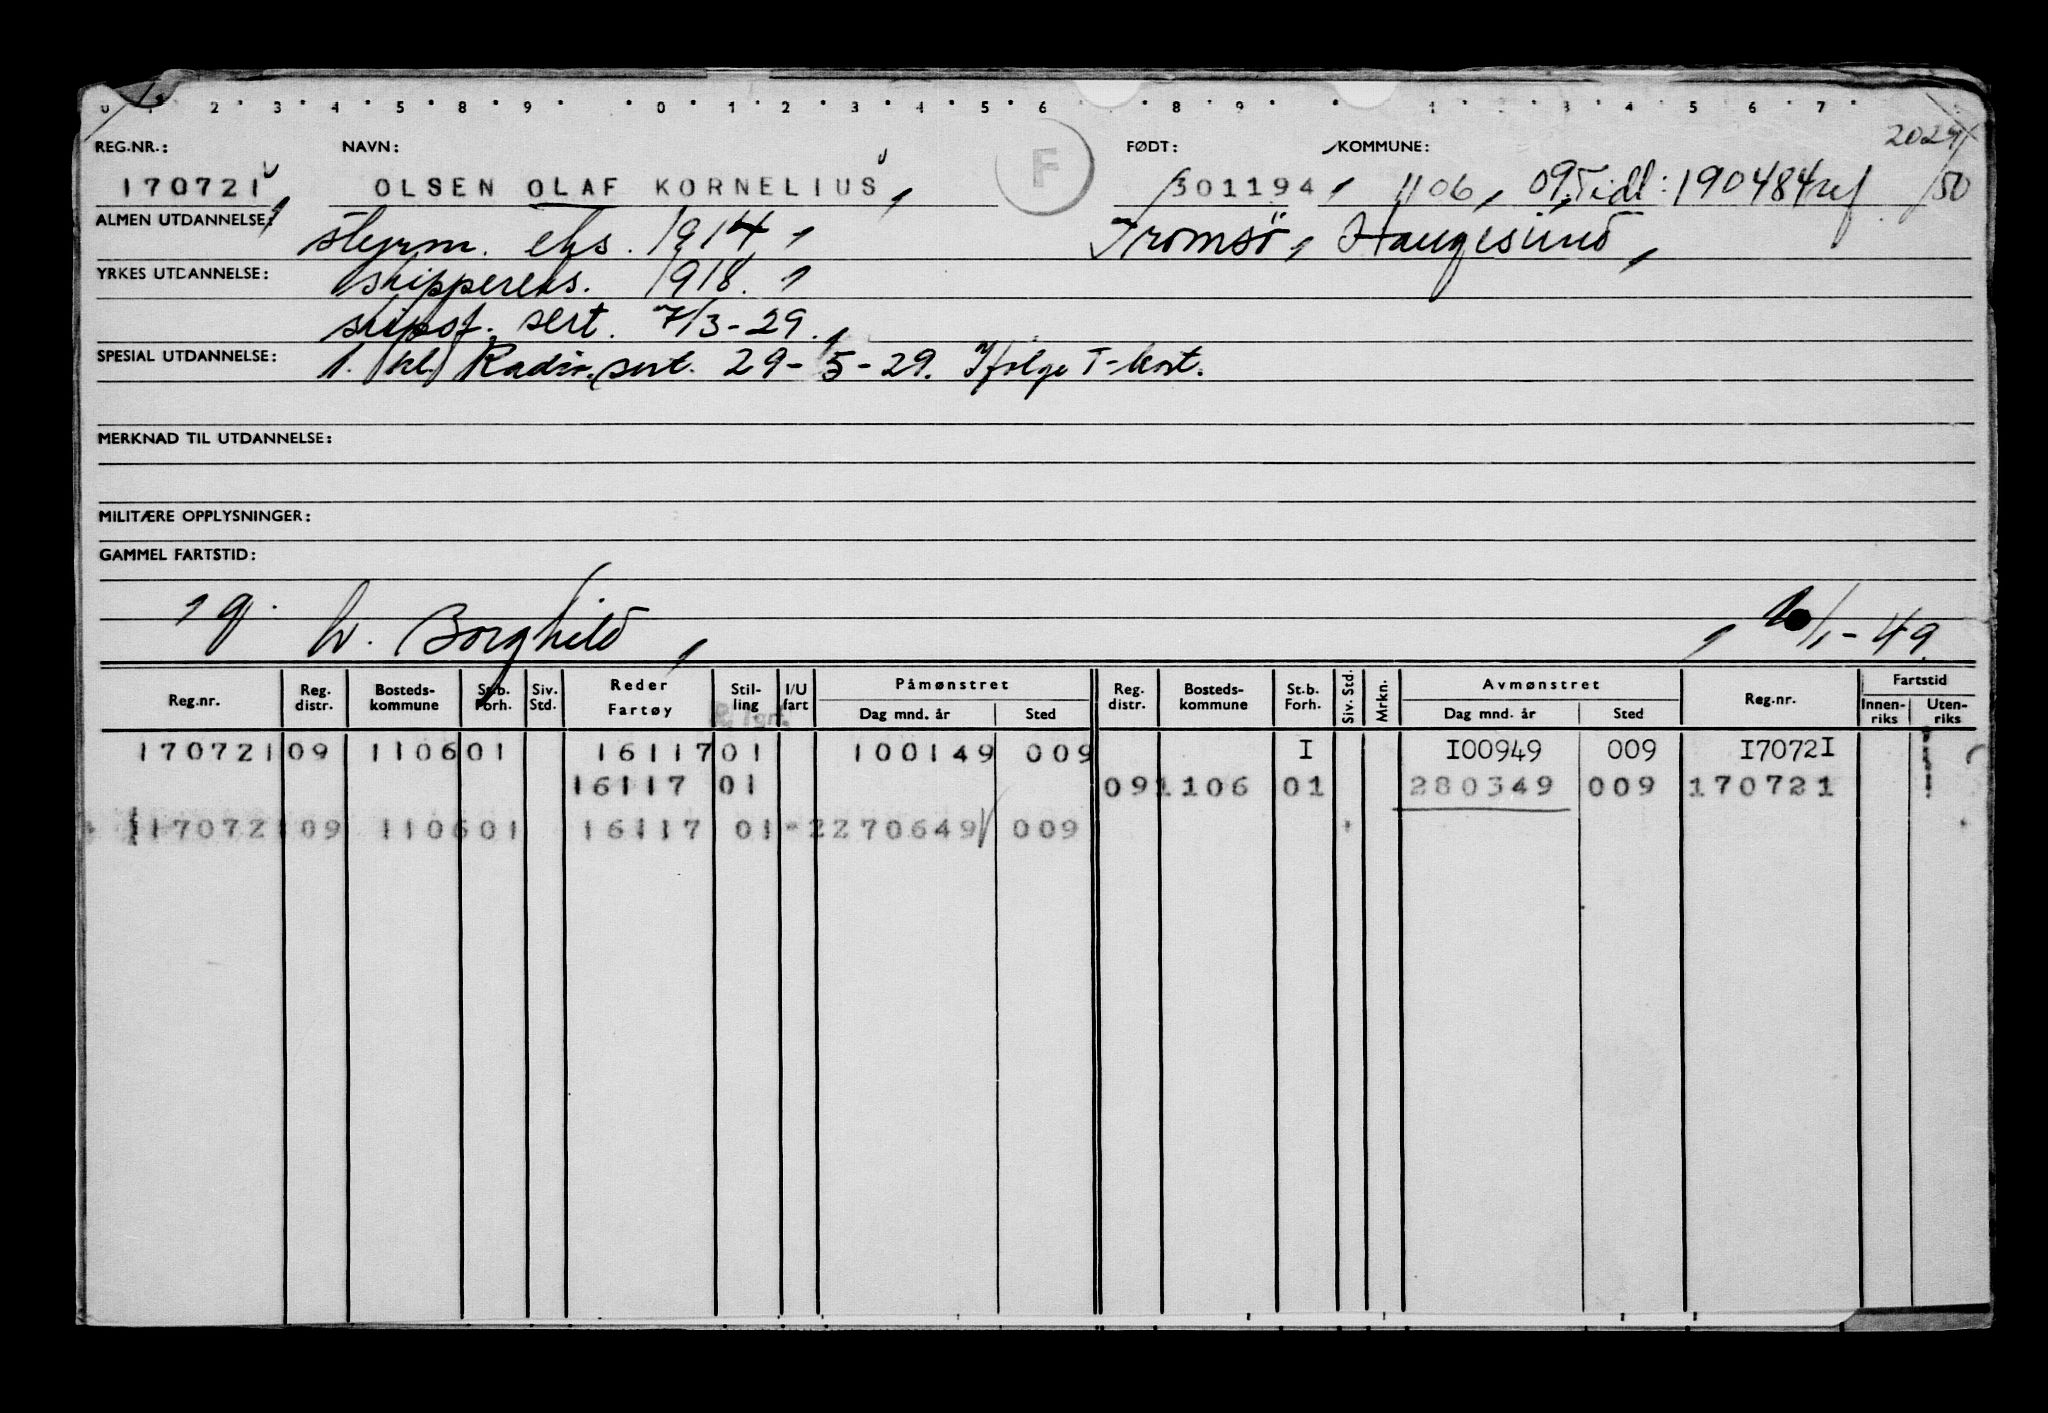 2 3 4 5 8 9 0 1 2 3 4 5 6 8 9 1 3 4 5 6 7
REG.NR.: NAVN: F FØDT: KOMMUNE:
170721 OLSEN OLAF KORNELIUS, 301194, 1106, 09, Tidl: 190484 /50
ALMEN UTDANNELSE: styrm. eks. 1914, Tromsö, Haugesund,
YRKES UTDANNELSE: skippereks. 1918,
skipsf. sert. 7/3-29,
SPESIAL UTDANNELSE: 1. kl. Radio sert. 29-5-29. Ifølge T-kort.
MERKNAD TIL UTDANNELSE:
MILITÆRE OPPLYSNINGER:
GAMMEL FARTSTID:
h. Borghild, /1-49
Reg.nr. Reg. distr. Bosteds-kommune St.b. Forh. Siv. Std. Reder Fartøy Stil-ling I/U fart Påmønstret Dag mnd. år Sted Reg. distr. Bosteds-kommune St.b. Forh. Siv. Std. Mrkn. Avmønstret Dag mnd. år Sted Reg.nr. Fartstid Innen-riks Uten-riks
170721 09 1106 01 16117 01 100149 009 I I00949 009 I7072I
16117 01 09 1106 01 280349 009 170721
170721 09 1106 01 16117 01 - 2 270649 009